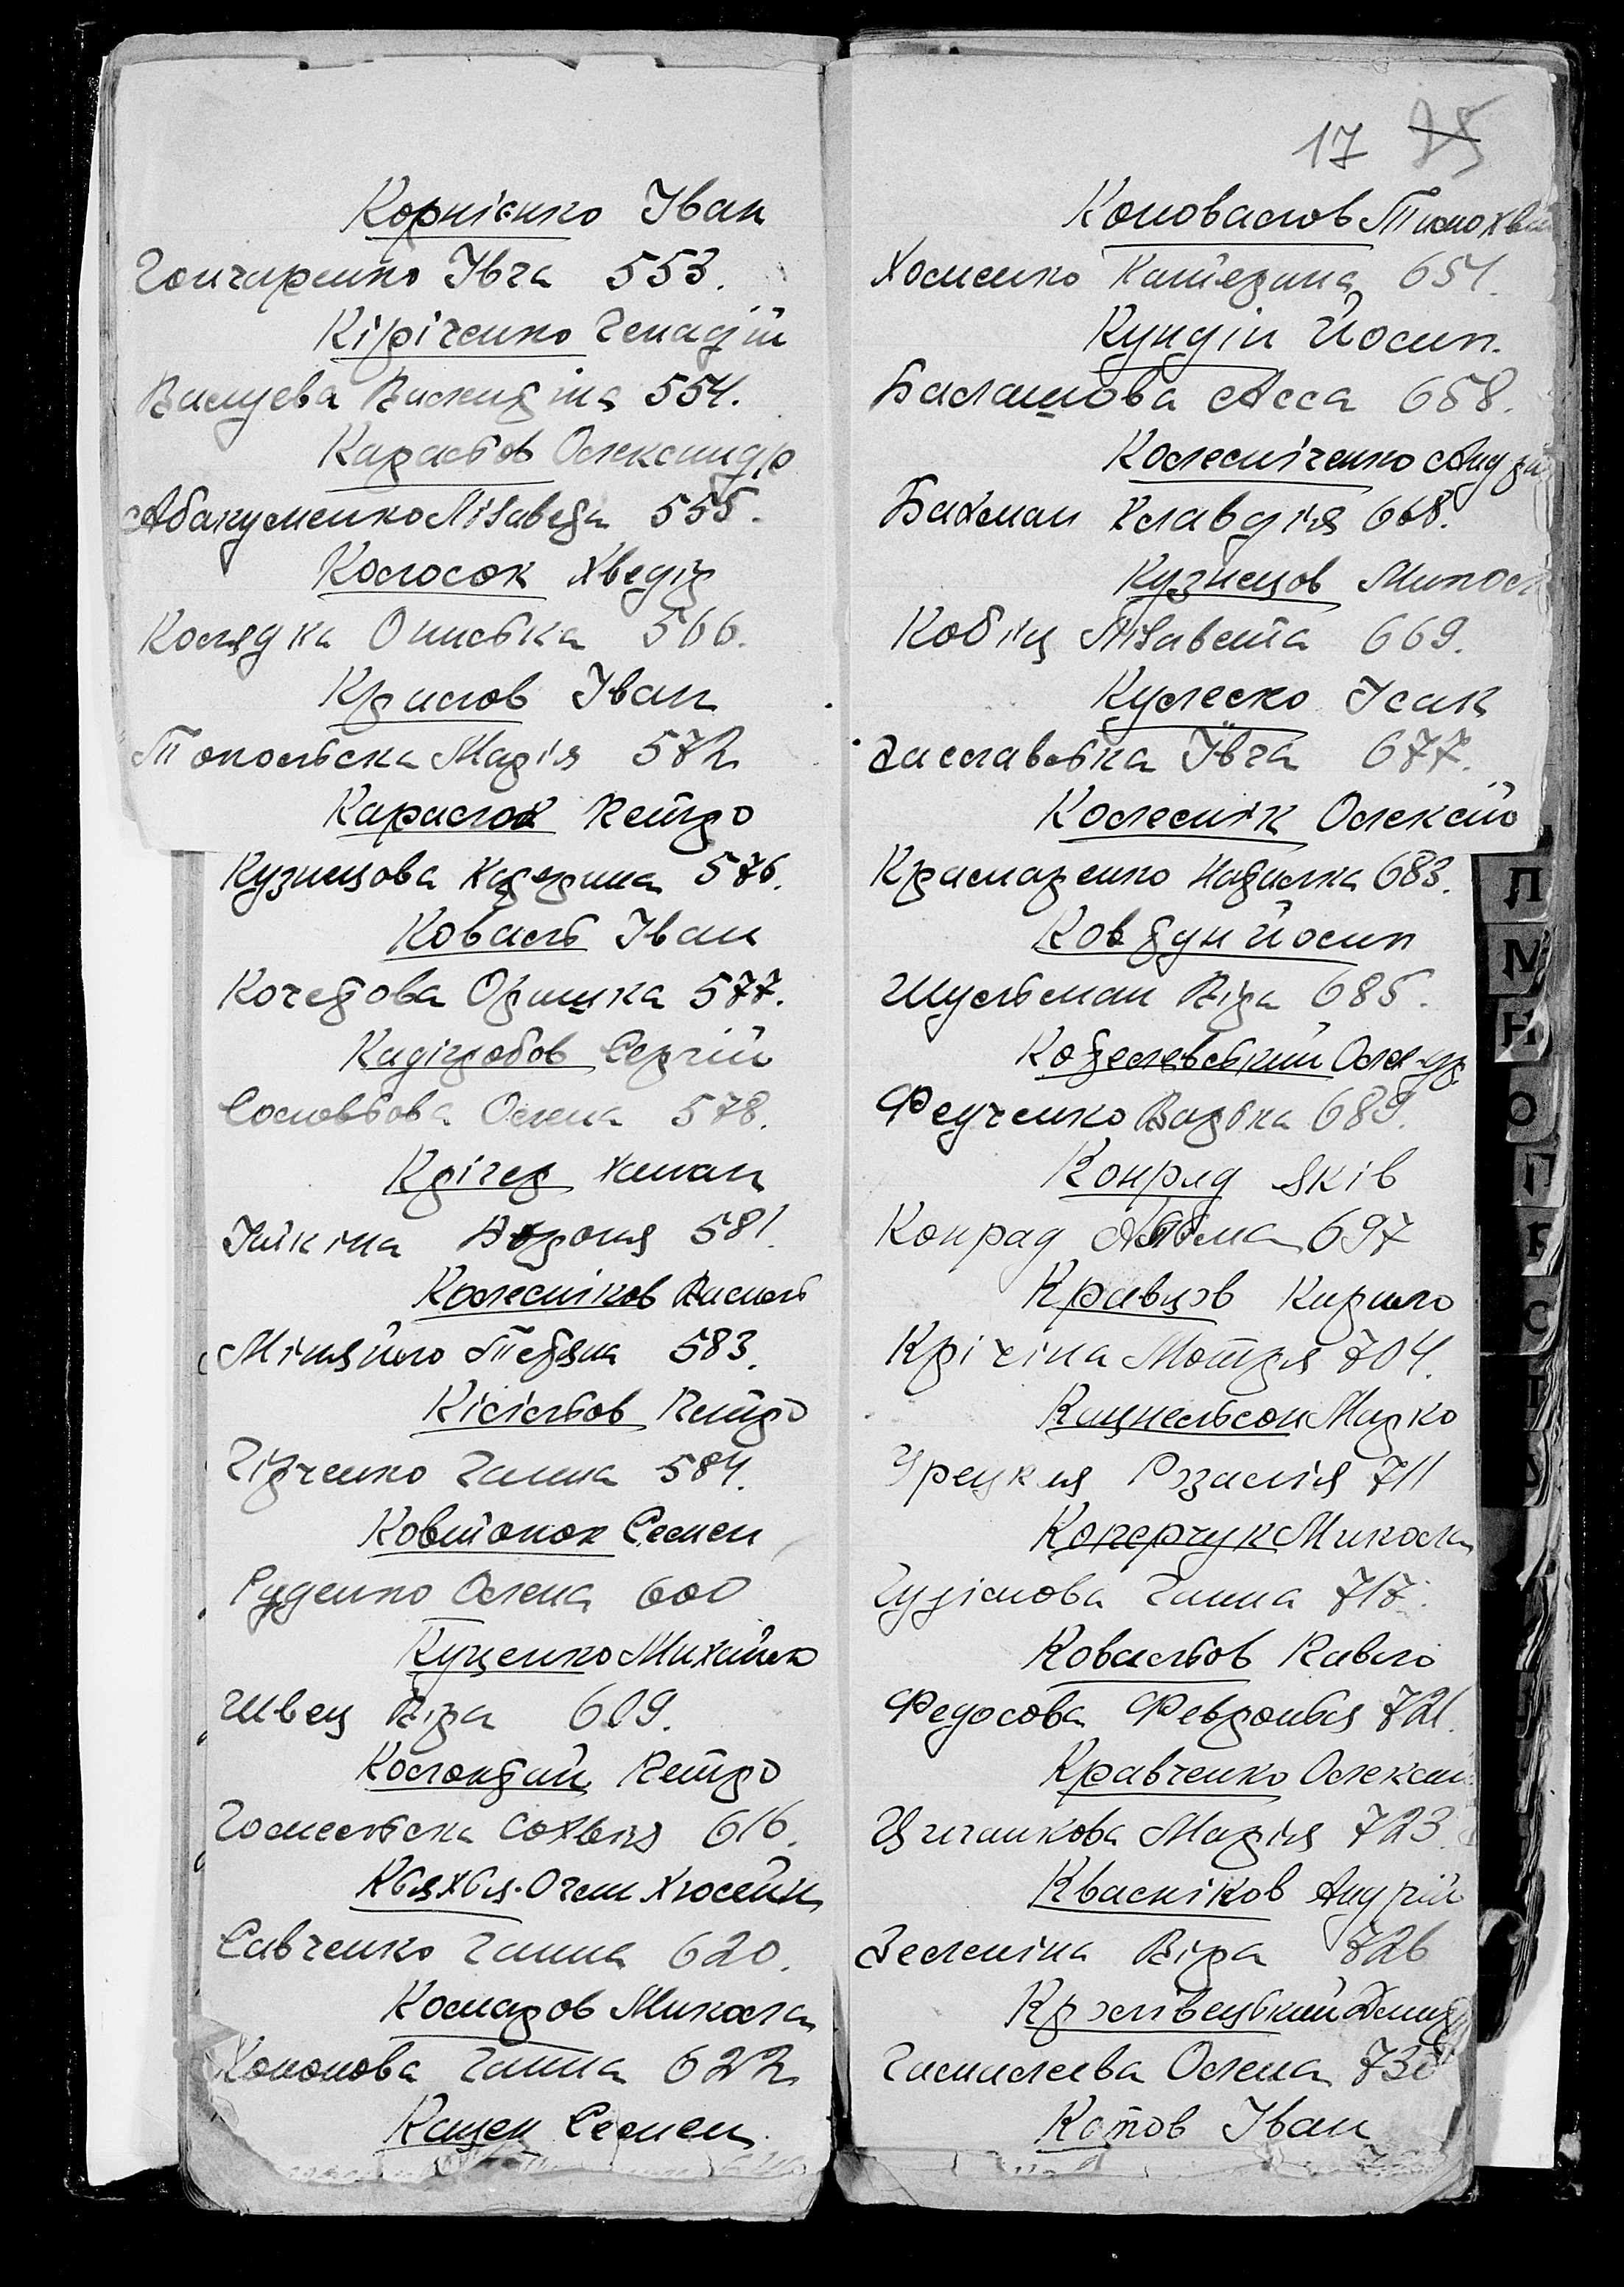 Корнієнко Іван
Гончаренко Івга 553.
Кіріченко Генадій
Валентіна 554.
Карастов Олександр
Абакуменко Лізавера 555.
Колосок Хведір
Колядка Ониська 566.
Крилов Іван
Топольска Марія 572
Карасюк Петро
Кузнецова Катерина 576.
Коваль Іван
Кочетова Оришка 577.
Кадігробов Сергій
Соловьова Олена 578.
Крічер Хаман
581.
Колесніков Василь
Міняйло Тетяна 583.
Кісільов Петро
Гірченко Ганна 584.
Ковтонюк Семен
Руденко Олена 600
Куценко Михайло
Швец Віра 609.
Колонтай Петро
Гомельска Сохвія 616.
Хюсейн
Савченко Ганна 620.
Комаров Микола
Кононова Ганна 622
Кацен Семен
17 35
Коновалов Тимохвій
Хоменко Катерина 654.
Кундін Йосип.
Балашова Асса 658.
Колесніченко Андрій
Бахман Клавдія 668.
Кузнецов Микола
Кобец Лізавета 669.
Кулеско Ісак
Заславська Івга 677.
Колеснік Олексій
Крамаренко Наталка 683.
Ковтун Йосип
Шульман Віра 685.
Кобелевський Олек-др
Федченко Варька 689.
Конрад Яків
Конрад 697
Кравцов Кирило
Крічіна Мотря 704.
Кацнельсон Марко
Урецкая Розалія 711
Коперчук Микола
Гудімова Ганна 717.
Ковальов Павло
Федосова Февронья 721.
Кравченко Олексан
Циганкова Марія 723.
Квасніков Андрій
Зеленіна Віра 726
Кролівецький
Гамалеева Олена 730
Котов Іван
Л
М
Н
О
П
Р
С
Т